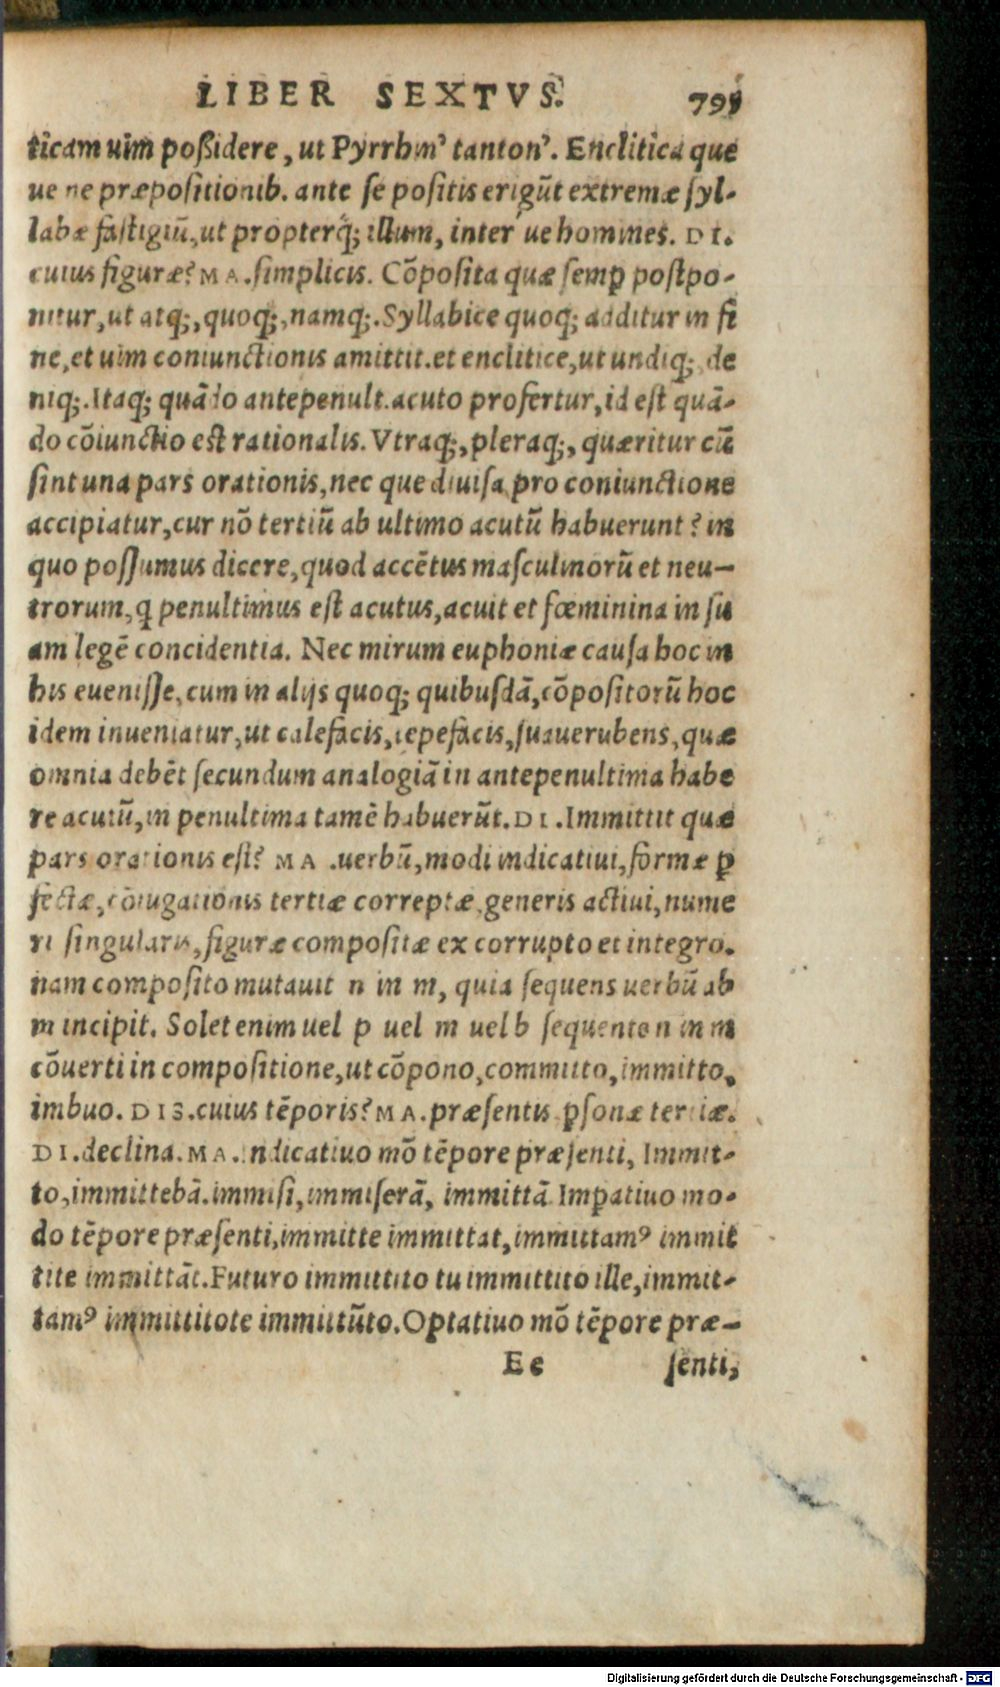 LIBER SEXTVS.
ticam uim poßidere, ut Pyrrhin' tanton'. Enclitica que
ue ne præpositionib. ante se positis erigūt extremæ syl-
labæ fastigiū, ut propterq́; illum, inter ue homines. DI.
cuius figuræ? MA. simplicis. Cōposita quæ semp̱ postpo-
nitur, ut atq;, quoq;, namq;. Syllabice quoq; additur in fi
ne, et uim coniunctionis amittit. et enclitice, ut undiq;, de
niq;. Itaq; quādo antepenult. acuto profertur, id est quā-
do cōiunctio est rationalis. Vtraq;, pleraq;, quæritur cū
sint una pars orationis, nec que diuisa pro coniunctione
accipiatur, cur nō tertiū ab ultimo acutū habuerunt? in
quo possumus dicere, quod accētus masculinorū et neu-
trorum, q penultimus est acutus, acuit et fœminina in su
am legē concidentia. Nec mirum euphoniæ causa hoc in
his euenisse, cum in alijs quoq; quibusdā, cōpositorū hoc
idem inueniatur, ut calefacis, tepefacis, suauerubens, quæ
omnia debēt secundum analogiā in antepenultima habe
re acutū, in penultima tamē habuerūt. DI. Immittit quæ
pars orationis est? MA. uerbū, modi indicatiui, formæ p̱
fectæ, cōiugationis tertiæ correptæ, generis actiui, nume
ri singularis, figuræ compositæ ex corrupto et integro.
nam composito mutauit n in m, quia sequens uerbū ab
m incipit. Solet enim uel p uel m uel b sequente n in m
cōuerti in compositione, ut cōpono, committo, immitto,
imbuo. DIS. cuius tēporis? MA. præsentis p̱sonæ tertiæ.
DI. declina. MA. Indicatiuo mō tēpore præsenti, Immit-
to, immittebā. immisi, immiserā, immittā Imp̱atiuo mo-
do tēpore præsenti, immitte immittat, immittamꝰ immit
tite immittāt. Futuro immittito tu immittito ille, immit-
tamꝰ immittitote immittūto. Optatiuo mō tēpore præ-
Ee senti,
Digitalisierung gefördert durch die Deutsche Forschungsgemeinschaft - DFG